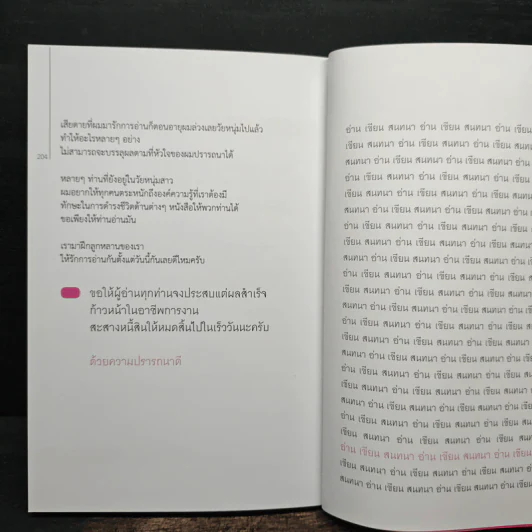 เสียดายที่ผมมารักการอ่านก็ตอนอายุผมล่วงเลยวัยหนุ่มไปแล้ว
ทำให้อะไรหลายๆ อย่าง
ไม่สามารถจะบรรลุผลตามที่หัวใจของผมปรารถนาได้
204
หลายๆ ท่านที่ยังอยู่ในวัยหนุ่มสาว
ผมอยากให้ทุกคนตระหนักถึงองค์ความรู้ที่เราต้องมี
ทักษะในการดำรงชีวิตด้านต่างๆ หนังสือให้พวกท่านได้
ขอเพียงให้ท่านอ่านมัน
เรามาฝึกลูกหลานของเรา
ให้รักการอ่านกันตั้งแต่วันนี้กันเลยดีไหมครับ
ขอให้ผู้อ่านทุกท่านจงประสบแต่ผลสำเร็จ
ก้าวหน้าในอาชีพการงาน
สะสางหนี้สินให้หมดสิ้นไปในเร็ววันนะครับ
ด้วยความปรารถนาดี
อ่าน เขียน สนทนา อ่าน เขียน สนทนา อ่าน เขียน
เขียน สนทนา อ่าน เขียน สนทนา อ่าน เขียน สนทนา
สนทนา อ่าน เขียน สนทนา อ่าน เขียน สนทนา อ่าน
อ่าน เขียน สนทนา อ่าน เขียน สนทนา อ่าน เขียน
เขียน สนทนา อ่าน เขียน สนทนา อ่าน เขียน สนทนา
สนทนา อ่าน เขียน สนทนา อ่าน เขียน สนทนา อ่าน
อ่าน เขียน สนทนา อ่าน เขียน สนทนา อ่าน เขียน
เขียน สนทนา อ่าน เขียน สนทนา อ่าน เขียน สนทนา
สนทนา อ่าน เขียน สนทนา อ่าน เขียน สนทนา อ่าน
อ่าน เขียน สนทนา อ่าน เขียน สนทนา อ่าน เขียน
เขียน สนทนา อ่าน เขียน สนทนา อ่าน เขียน สนทนา
สนทนา อ่าน เขียน สนทนา อ่าน เขียน สนทนา อ่าน
อ่าน เขียน สนทนา อ่าน เขียน สนทนา อ่าน เขียน
เขียน สนทนา อ่าน เขียน สนทนา อ่าน เขียน สนทนา
สนทนา อ่าน เขียน สนทนา อ่าน เขียน สนทนา อ่าน
อ่าน เขียน สนทนา อ่าน เขียน สนทนา อ่าน เขียน
เขียน สนทนา อ่าน เขียน สนทนา อ่าน เขียน สนทนา
สนทนา อ่าน เขียน สนทนา อ่าน เขียน สนทนา อ่าน
อ่าน เขียน สนทนา อ่าน เขียน สนทนา อ่าน เขียน
เขียน สนทนา อ่าน เขียน สนทนา อ่าน เขียน
อ่าน เขียน สนทนา อ่าน เขียน สนทนา อ่าน เขียน
เขียน สนทนา อ่าน เขียน สนทนา อ่าน เขียน สนทนา
สนทนา อ่าน เขียน สนทนา อ่าน เขียน สนทนา อ่าน เขียน